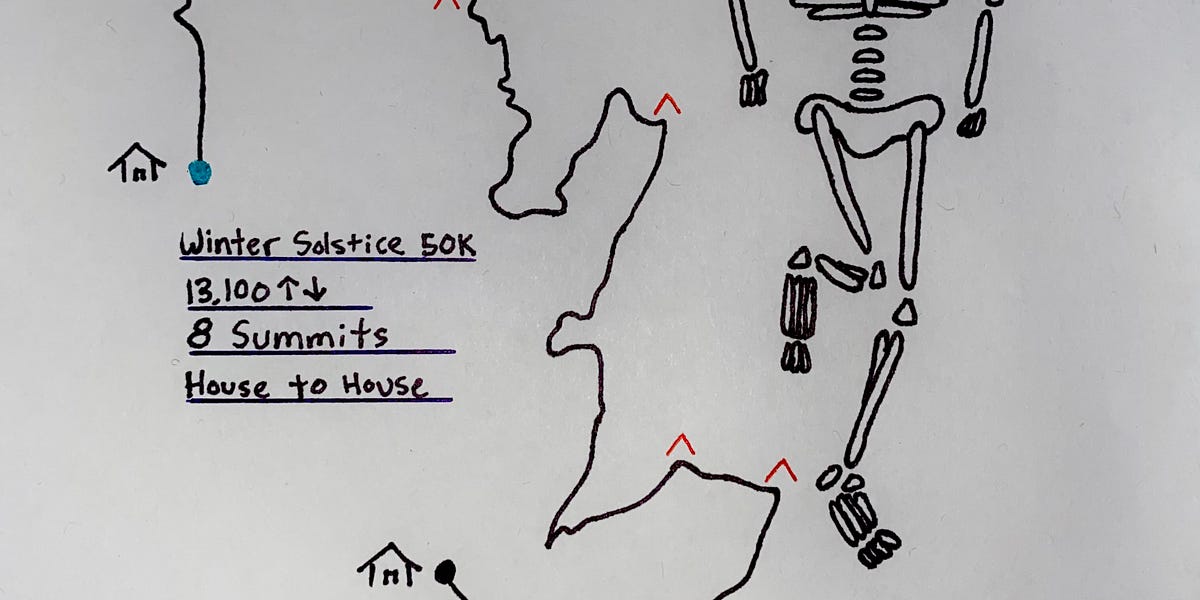 Winter Solstice 50K
13,100 ↑↓
8 Summits
House to House